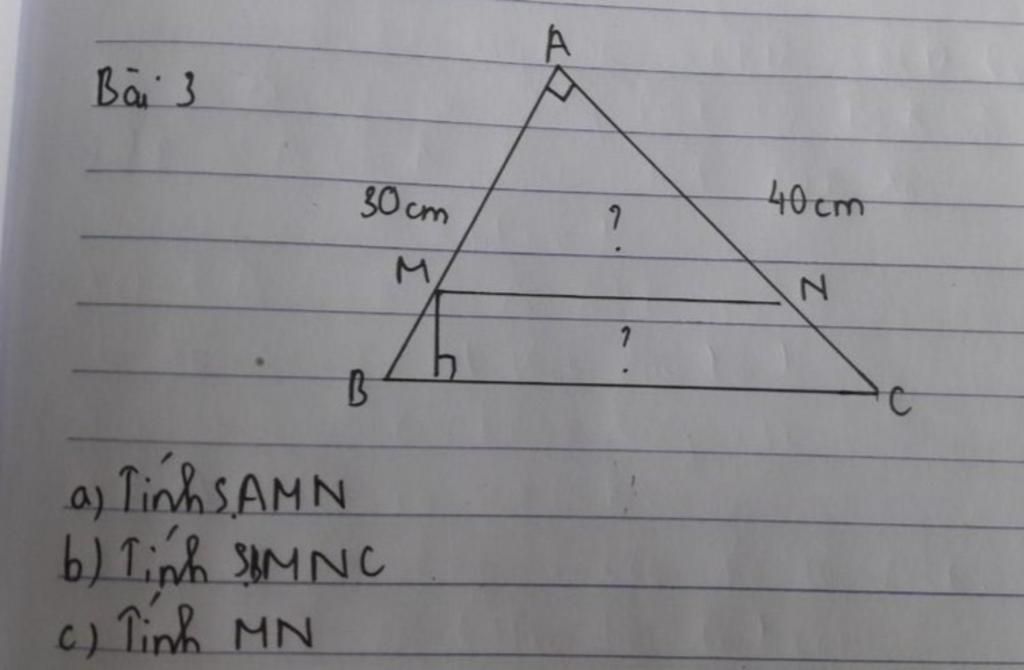 A
Bài 3
30cm
?
40cm
M
N
?
B
C
a) Tính S.AMN
b) Tính SBMNC
c) Tính MN